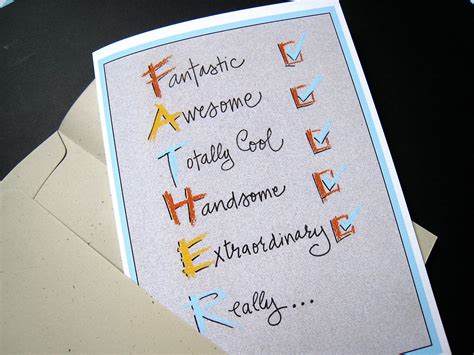 Fantastic
Awesome
Totally Cool
Handsome
Extraordinary
Really...